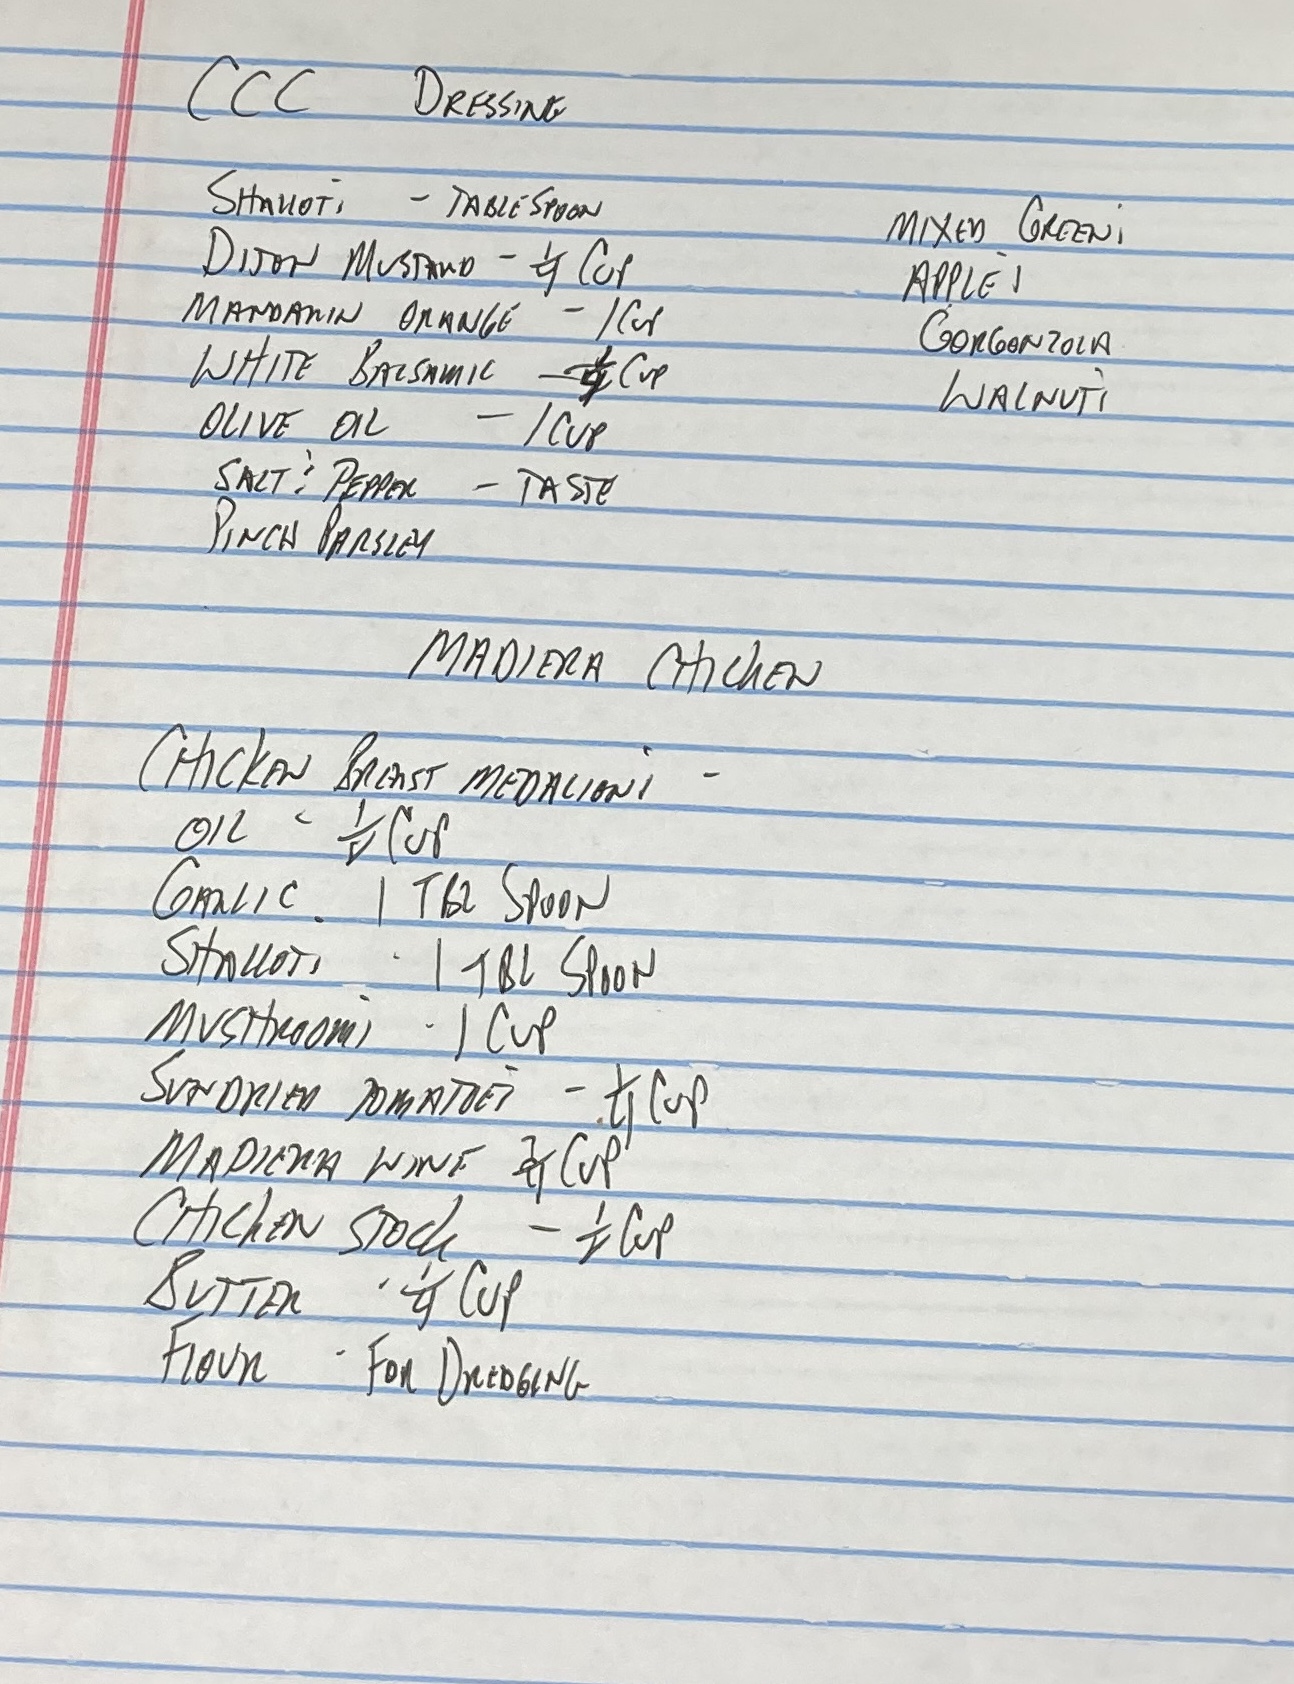 CCC DRESSING
SHALLOTS - TABLESPOON
DIJON MUSTARD - 1/4 CUP
MANDARIN ORANGE - 1 CUP
WHITE BALSAMIC - CUP
OLIVE OIL - 1 CUP
SALT & PEPPER - TASTE
PINCH PARSLEY
MIXED GREENS
APPLES
GORGONZOLA
WALNUTS
MADIERA CHICKEN
CHICKEN BREAST MEDALIONS -
OIL - 1/2 CUP
GARLIC. 1 TBL SPOON
SHALLOTS - 1 TBL SPOON
MUSHROOMS - 1 CUP
SUNDRIED TOMATOES - 1/4 CUP
MADIERA WINE 3/4 CUP
CHICKEN STOCK - 1/2 CUP
BUTTER - 1/4 CUP
FLOUR - FOR DREDGING